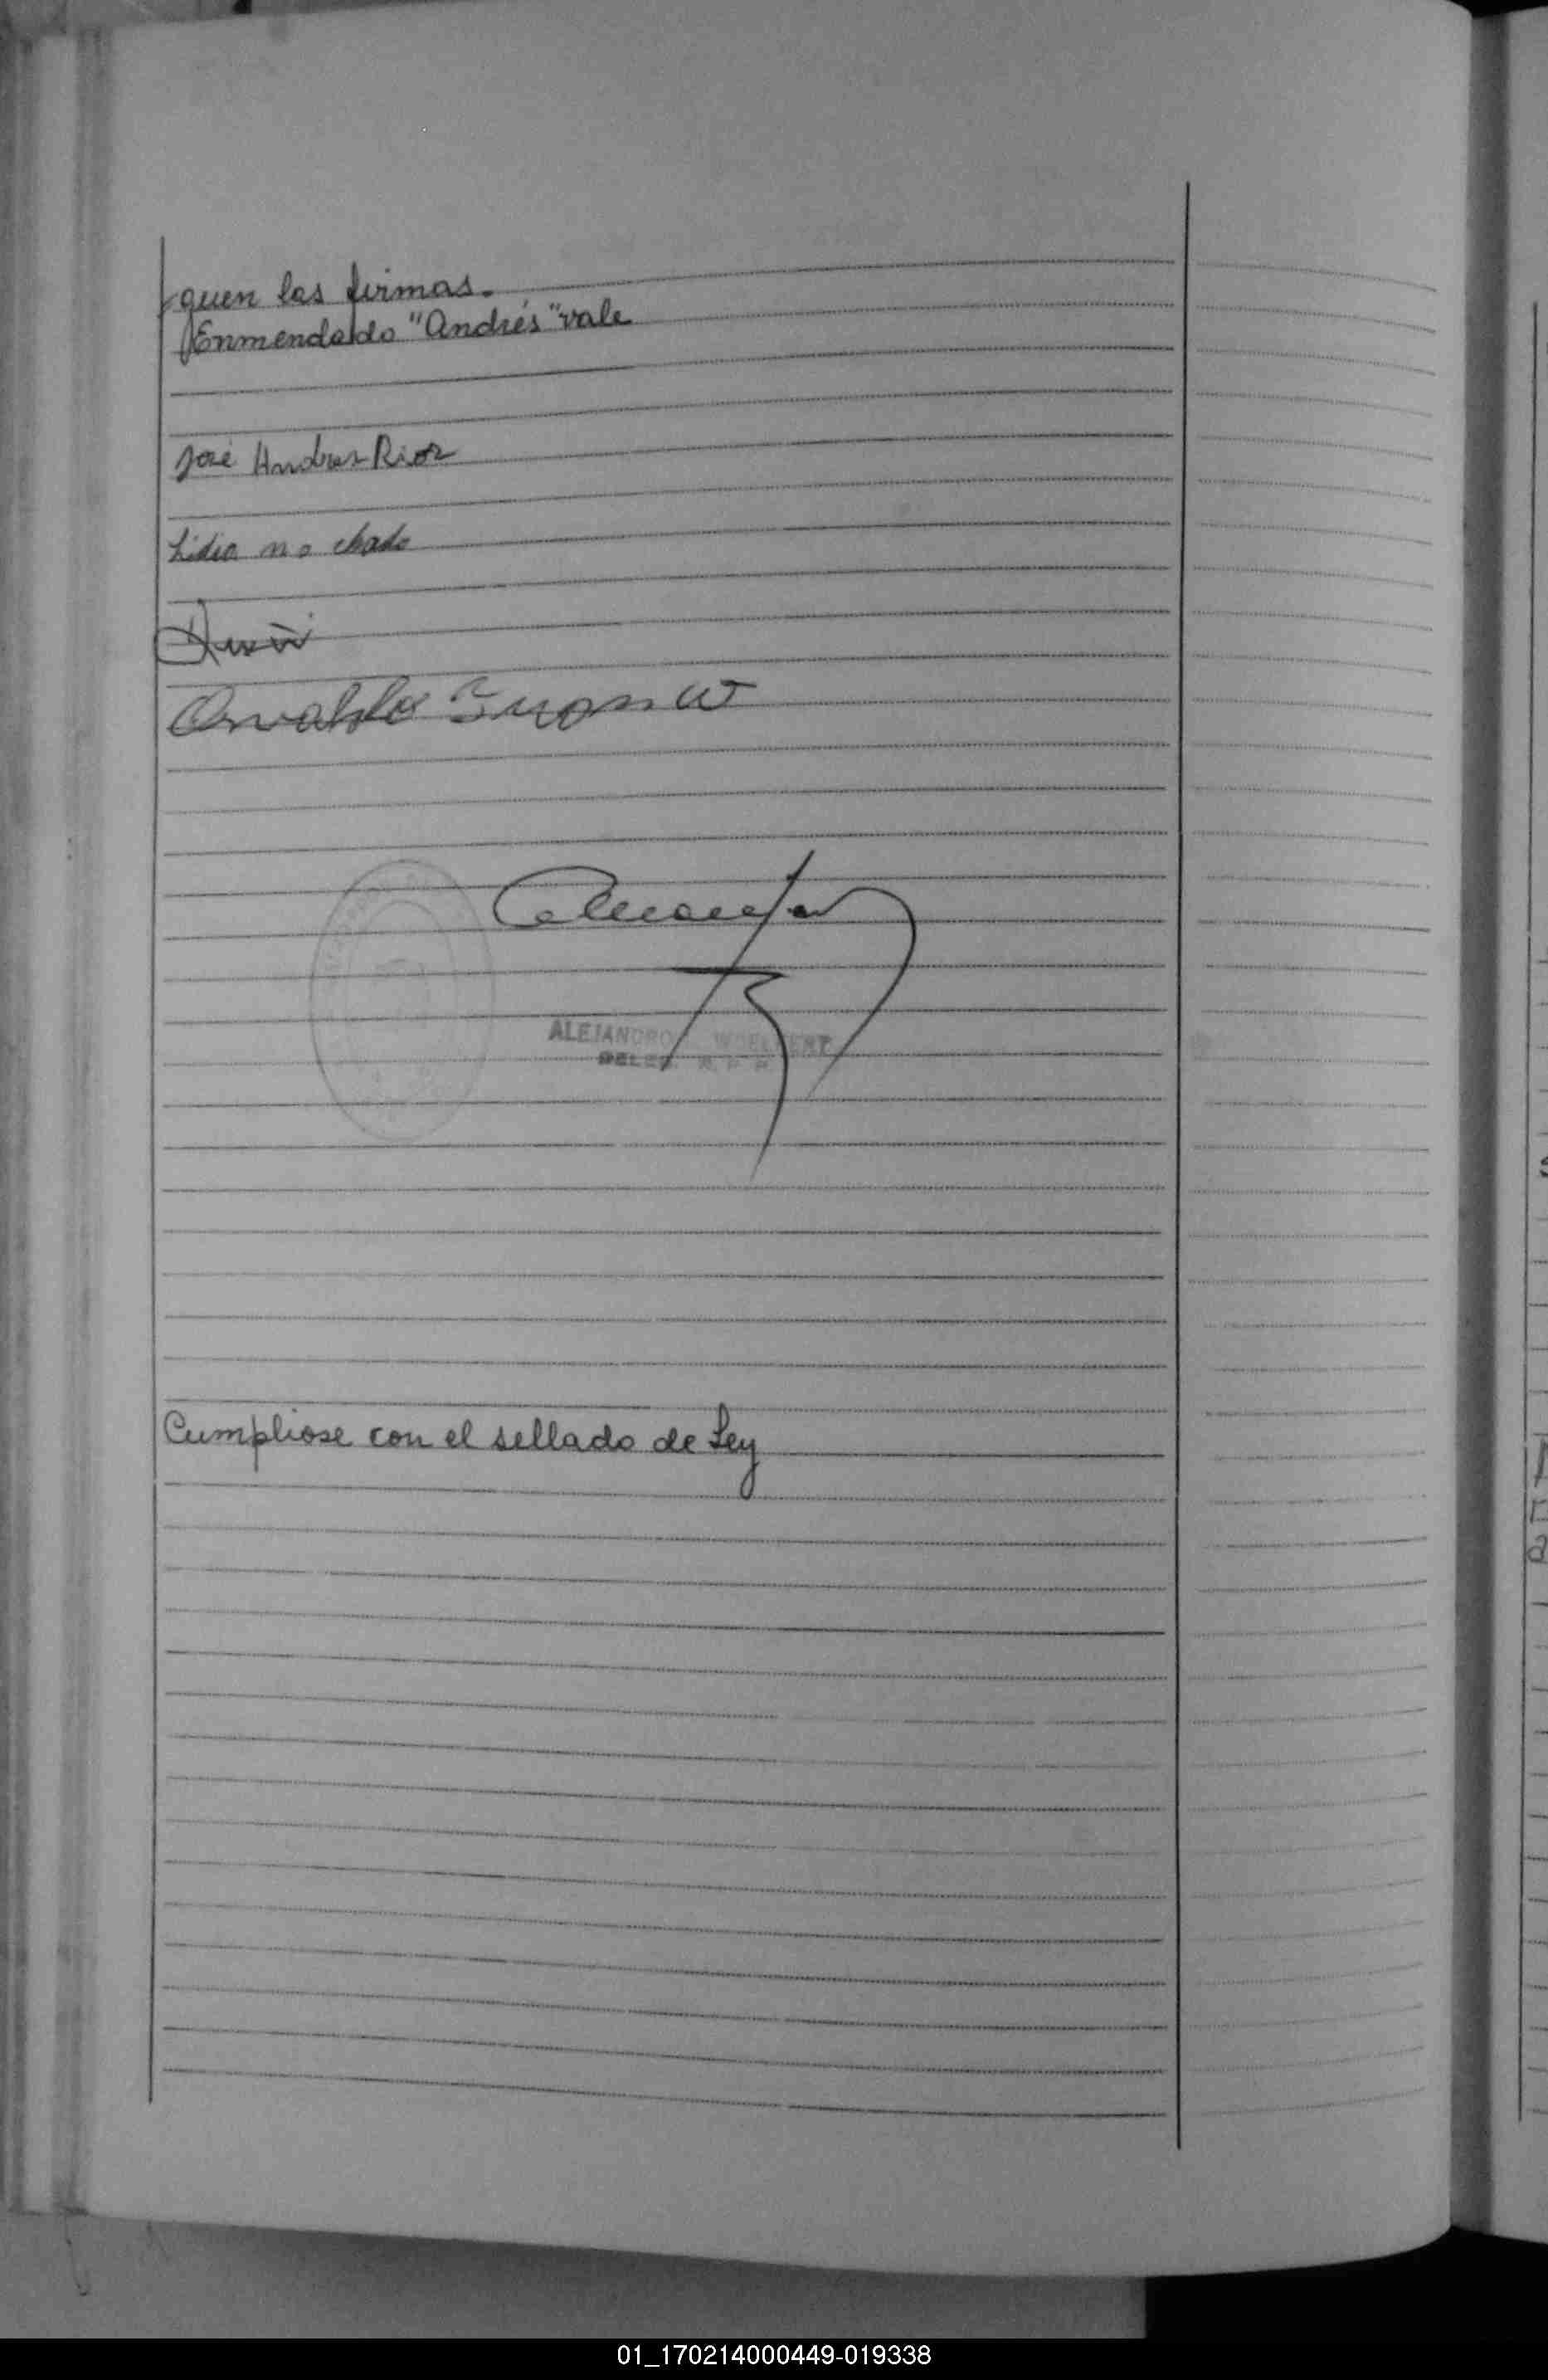 quen las firmas.
Enmendado "Andrés" vale
José Andres Rios
Lidia no chado
Osvaldo
ALEJANDRO
DELEG.
Cumpliose con el sellado de Ley
01_170214000449-019338